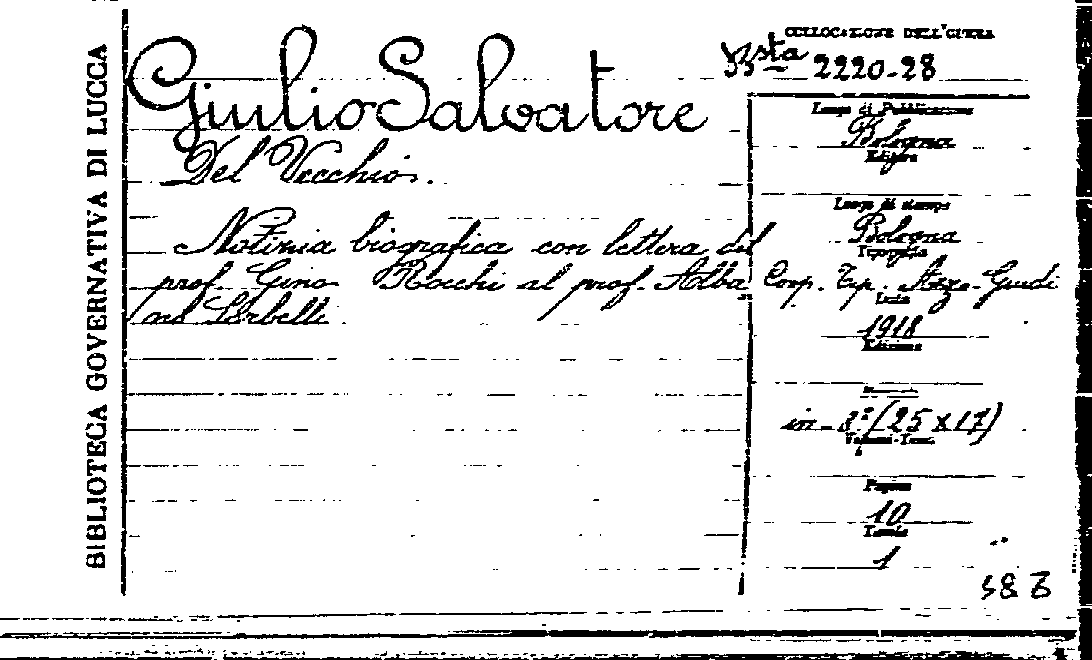 BIBLIOTECA GOVERNATIVA DI LUCCA
Giulio Salvatore
Del Vecchio.
Notizia biografica con lettera del
prof. Gino Rocchi al prof. Alba
no Sorbelli
COLLOCAZIONE DELL'OPERA
Bsta 2220-28
Luogo di Pubblicazione
Bologna
Editore
Luogo di stampa
Bologna
Tipografia
Coop. Tip. Azzo-Guidi
Data
1918
Edizione
in-8º (25x17)
Volumi-Tomi
Pagine
10
Tavole
1